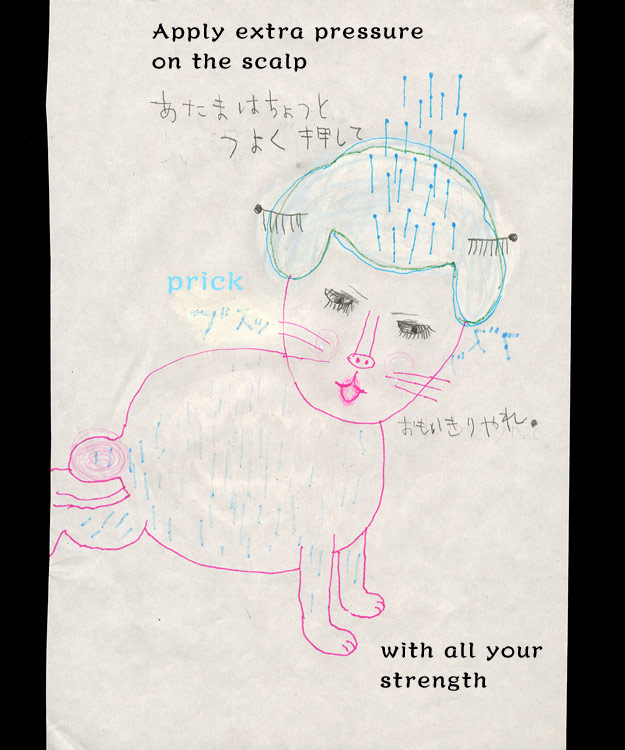 Apply extra pressure
on the scalp
あたまはちょっと
つよく押して
prick
ブスッ
おもいきりやれ。
with all your
strength